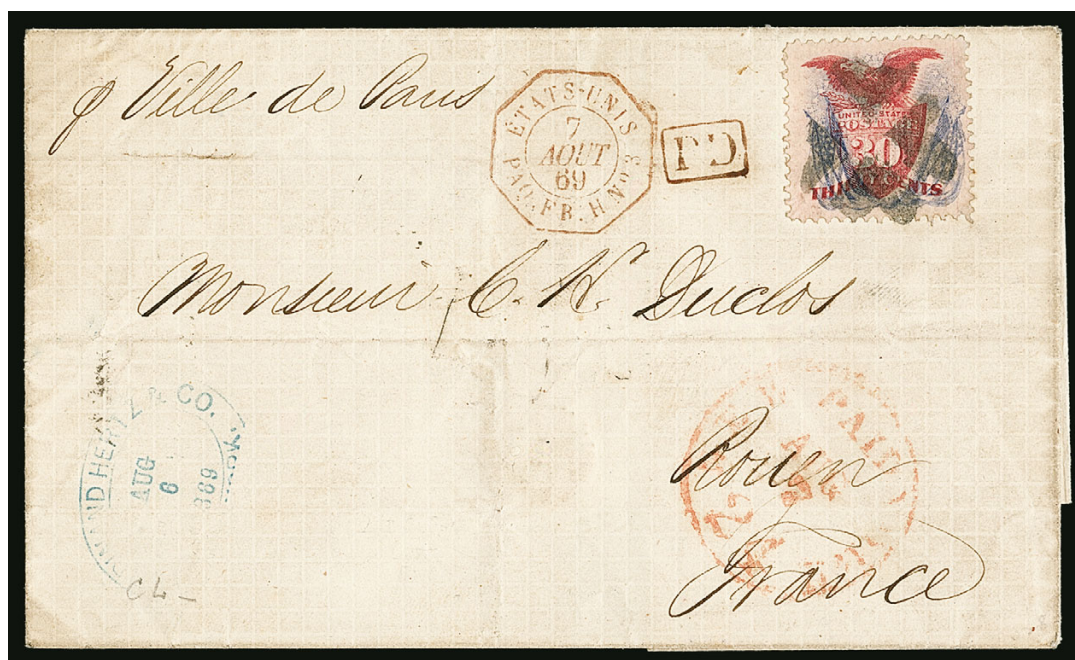 p Ville de Paris
ETATS-UNIS
7
AOUT
69
PAQ. FR. H Nº 3
P.D.
UNITED STATES
POSTAGE
30
THIRTY CENTS
Monsieur C. H. Duclos
Rouen
France
& CO.
AUG
6
869
PAID